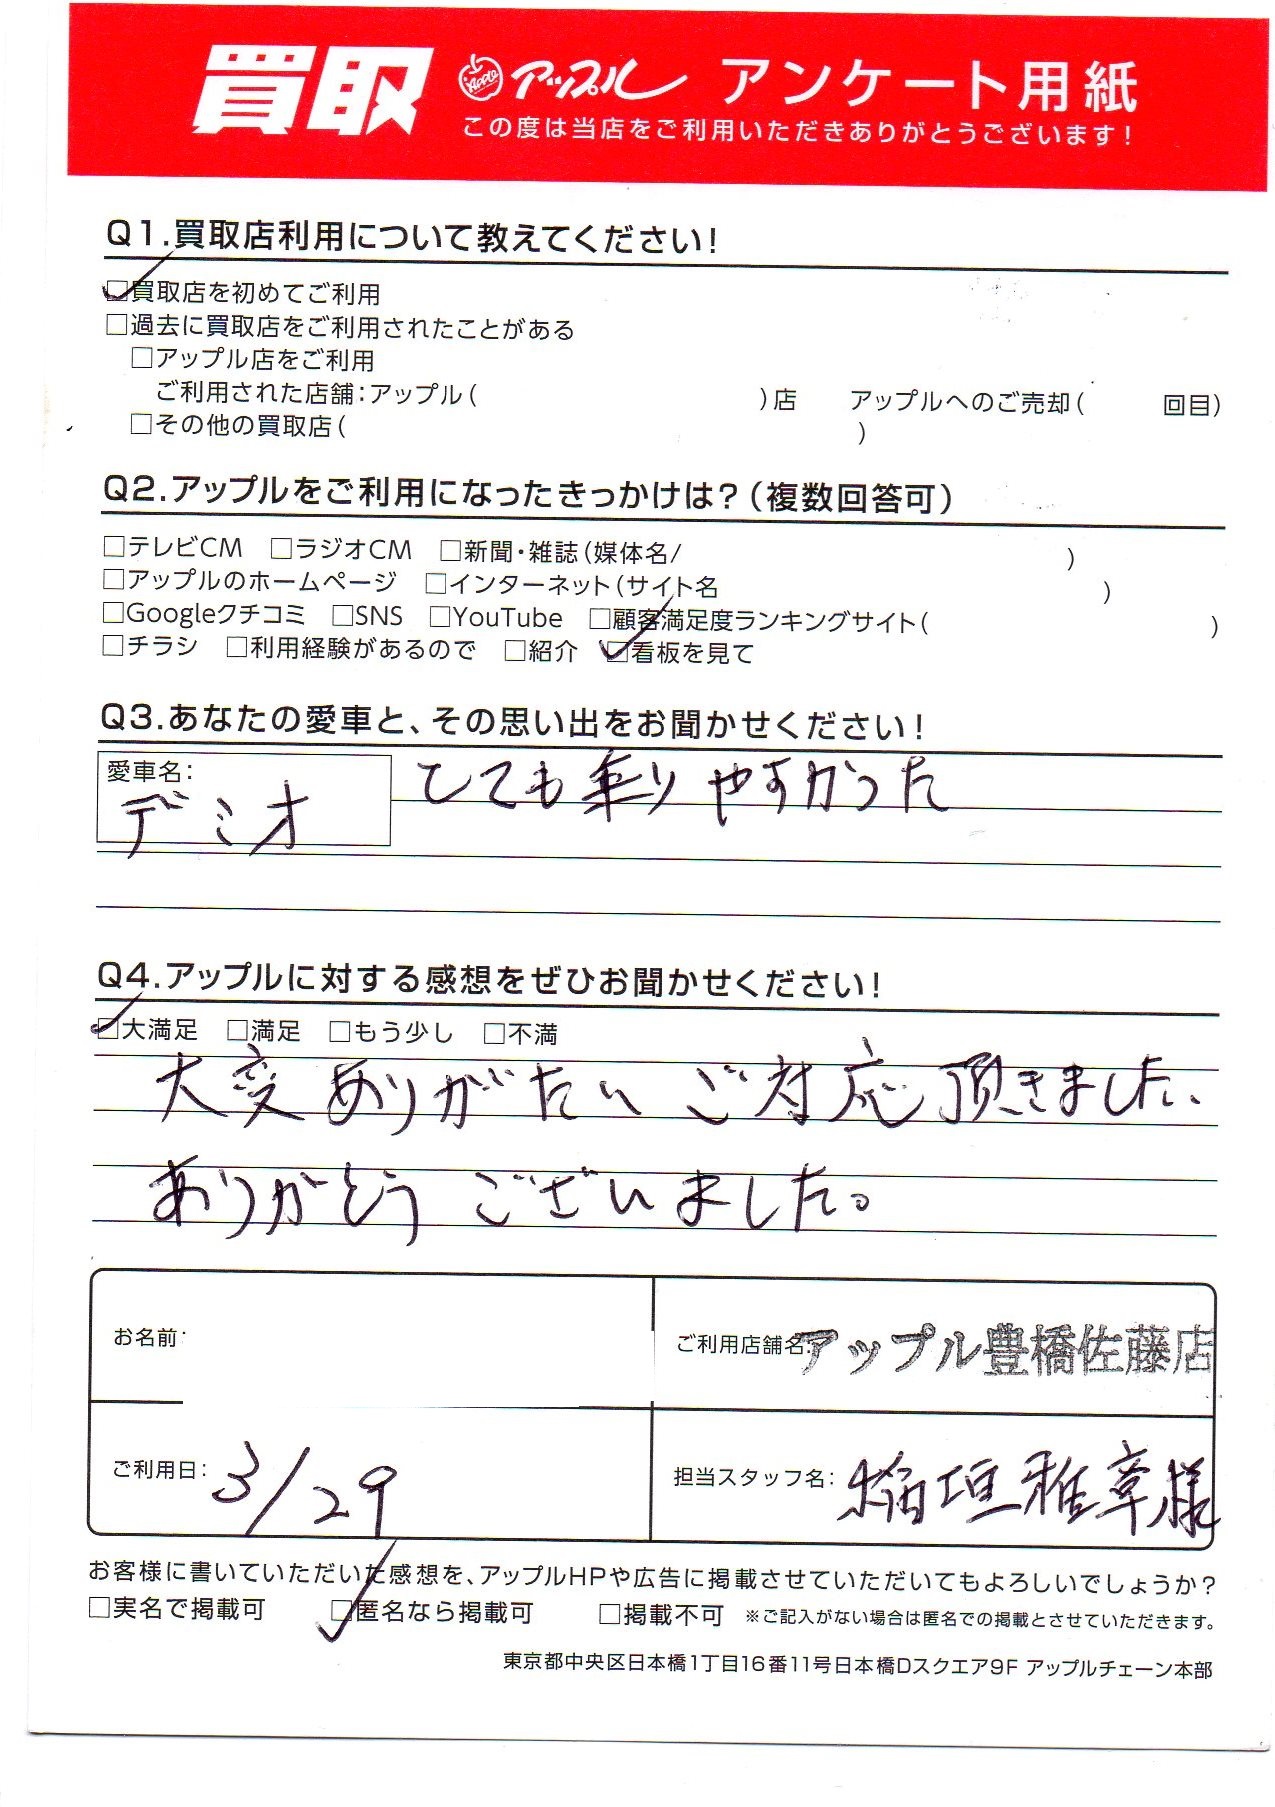 買取 Apple アップル アンケート用紙
この度は当店をご利用いただきありがとうございます!
Q1.買取店利用について教えてください!
☑買取店を初めてご利用
□過去に買取店をご利用されたことがある
□アップル店をご利用
ご利用された店舗:アップル( )店 アップルへのご売却( 回目)
□その他の買取店( )
Q2.アップルをご利用になったきっかけは?(複数回答可)
□テレビCM □ラジオCM □新聞・雑誌(媒体名/ )
□アップルのホームページ □インターネット(サイト名 )
□Googleクチコミ □SNS □YouTube □顧客満足度ランキングサイト( )
□チラシ □利用経験があるので □紹介 ☑看板を見て
Q3.あなたの愛車と、その思い出をお聞かせください!
愛車名:
デミオ
とても乗りやすかった
Q4.アップルに対する感想をぜひお聞かせください!
☑大満足 □満足 □もう少し □不満
大変ありがたいご対応頂きました、
ありがとうございました。
お名前:
ご利用店舗名:アップル豊橋佐藤店
ご利用日:3/29
担当スタッフ名:稲垣雅章様
お客様に書いていただいた感想を、アップルHPや広告に掲載させていただいてもよろしいでしょうか?
□実名で掲載可 ☑匿名なら掲載可 □掲載不可 ※ご記入がない場合は匿名での掲載とさせていただきます。
東京都中央区日本橋1丁目16番11号日本橋Dスクエア9F アップルチェーン本部